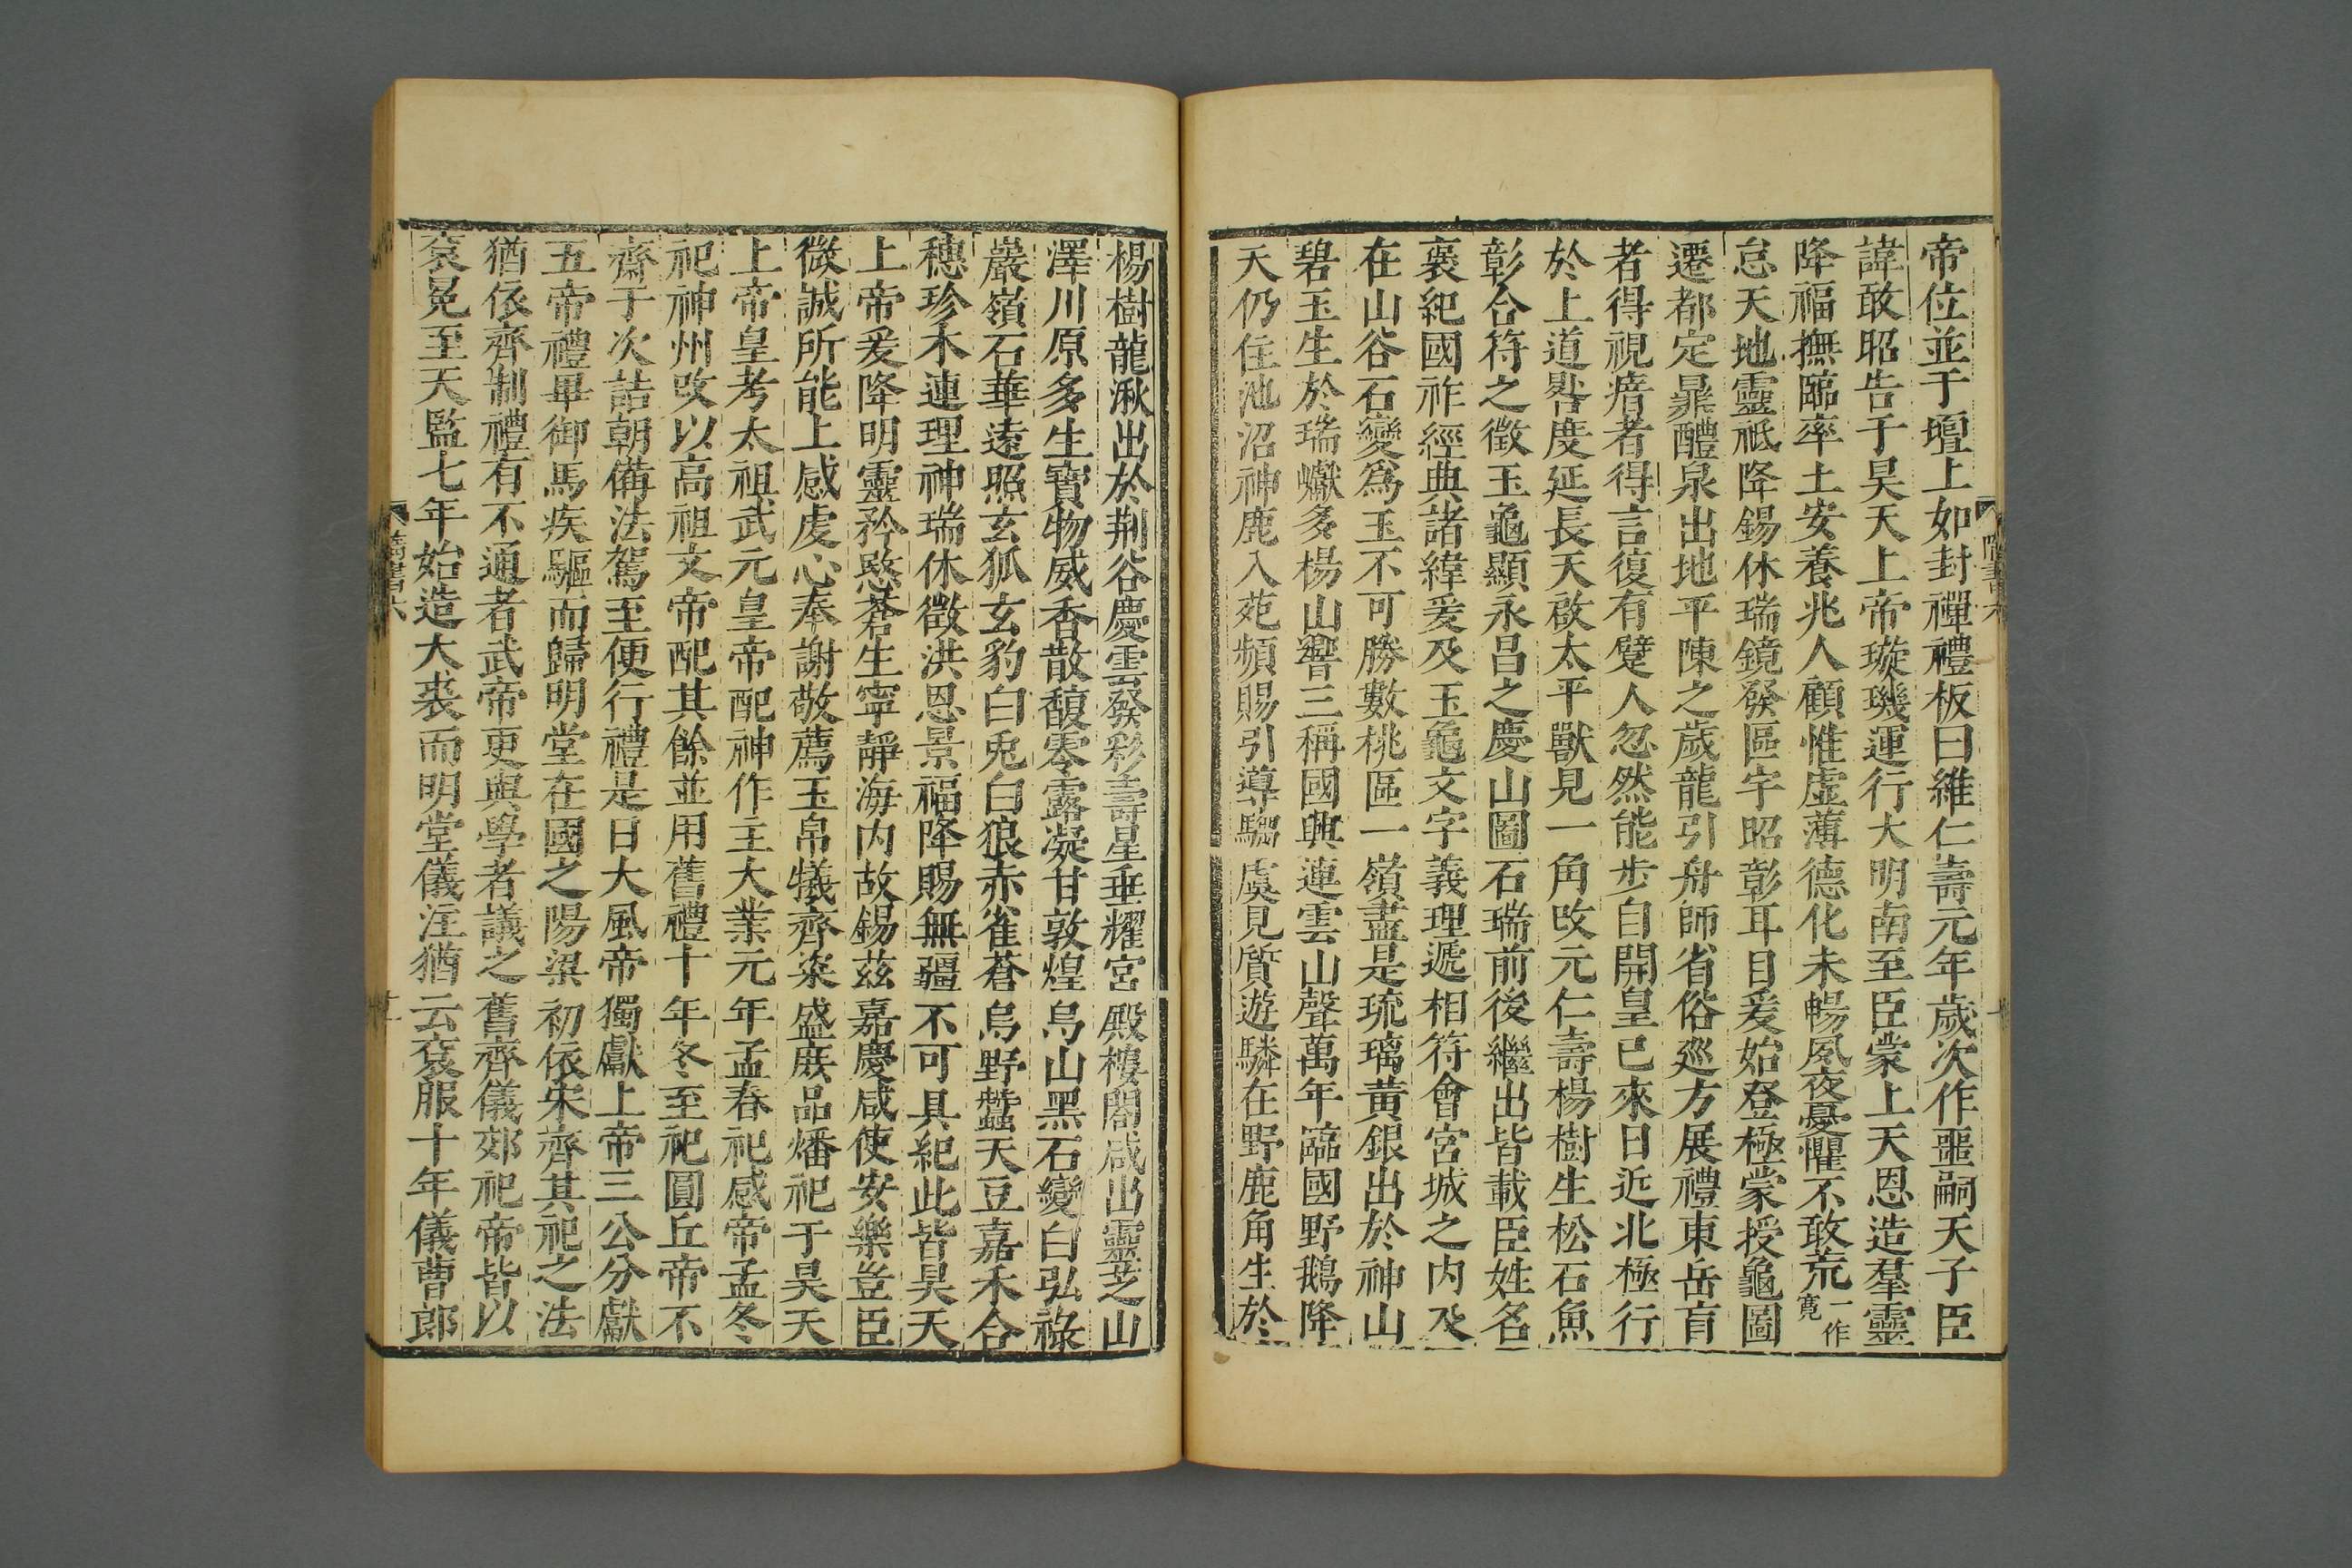 帝位並于壇上如封禪禮板曰維仁壽元年歲次作噩嗣天子臣
諱敢昭告于昊天上帝璇璣運行大明南至臣蒙上天恩造羣靈
降福撫臨率土安養兆人顧惟虛薄德化未暢夙夜憂懼不敢荒一作寛
怠天地靈祇降錫休瑞鏡發區宇昭彰耳目爰始登極蒙授龜圖
遷都定鼎醴泉出地平陳之歲龍引舟師省俗巡方展禮東岳盲
者得視瘖者得言復有躄人忽然能步自開皇已來日近北極行
於上道晷度延長天啟太平獸見一角改元仁壽楊樹生松石魚
彰合符之徵玉龜顯永昌之慶山圖石瑞前後繼出皆載臣姓名
褒紀國祚經典諸緯爰及玉龜文字義理遞相符會宮城之內及
在山谷石變爲玉不可勝數桃區一嶺盡是琉璃黃銀出於神山
碧玉生於瑞巘多楊山響三稱國興連雲山聲萬年臨國野鵝降
天仍住池沼神鹿入苑頻賜引導騶虞見質遊驎在野鹿角生於
楊樹龍湫出於荆谷慶雲發彩壽星垂耀宮殿樓閣咸出靈芝山
澤川原多生寶物威香散馥零露凝甘敦煌烏山黑石變白弘祿
巖嶺石華遠照玄狐玄豹白兎白狼赤雀蒼烏野蠶天豆嘉禾合
穗珍木連理神瑞休徵洪恩景福降賜無疆不可具紀此皆昊天
上帝爰降明靈矜愍蒼生寧靜海內故錫茲嘉慶咸使安樂豈臣
微誠所能上感虔心奉謝敬薦玉帛犧齊粢盛庶品燔祀于昊天
上帝皇考太祖武元皇帝配神作主大業元年孟春祀感帝孟冬
祀神州改以高祖文帝配其餘並用舊禮十年冬至祀圓丘帝不
齋于次詰朝備法駕至便行禮是日大風帝獨獻上帝三公分獻
五帝禮畢御馬疾驅而歸明堂在國之陽梁初依宋齊其祀之法
猶依齊制禮有不通者武帝更與學者議之舊齊儀郊祀帝皆以
袞冕至天監七年始造大裘而明堂儀注猶云袞服十年儀曹郎